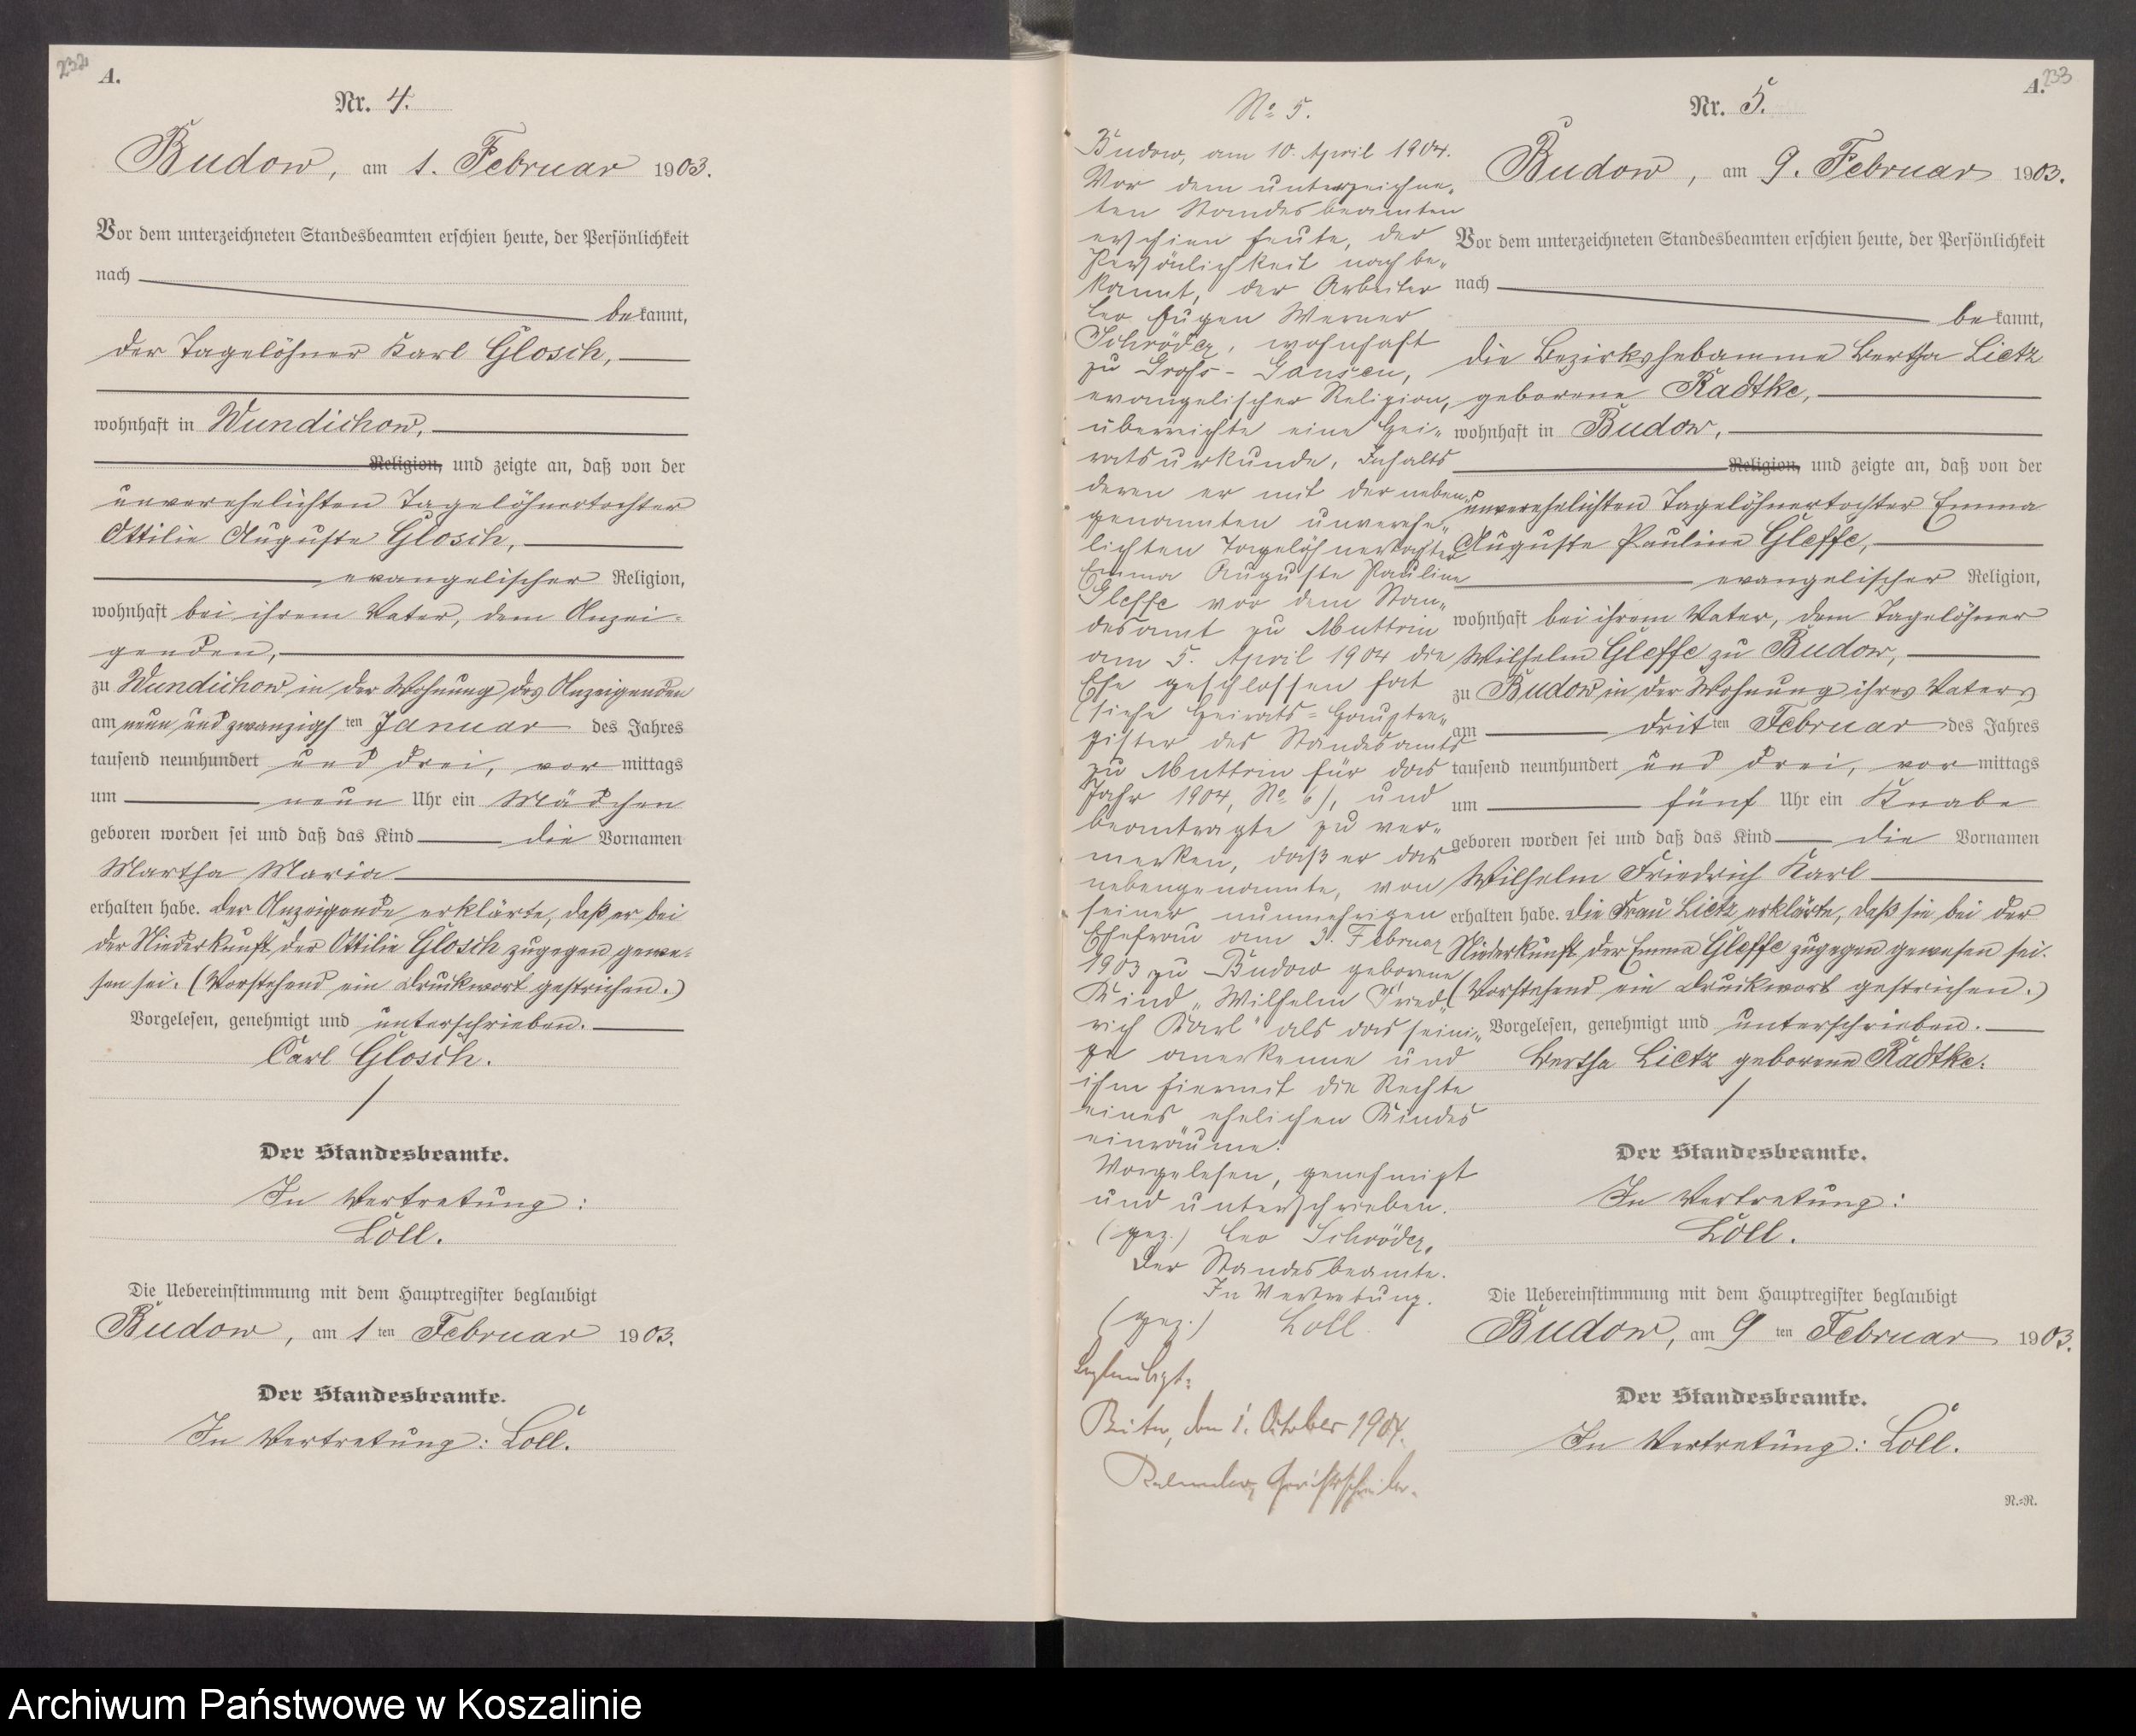 232
A.
Nr. 4.
Budow, am 1. Februar 1903.
Vor dem unterzeichneten Standesbeamten erschien heute, der Persönlichkeit
nach
bekannt,
der Tagelöhner Karl Glosch,
wohnhaft in Wundichow,
Religion, und zeigte an, daß von der
unverehelichten Tagelöhnertochter
Ottilie Auguste Glosch,
evangelischer Religion,
wohnhaft bei ihrem Vater, dem Anzei-
genden,
zu Wundichow in der Wohnung des Anzeigenden
am neun und zwanzigsten Januar des Jahres
tausend neunhundert und drei, vormittags
um neun Uhr ein Mädchen
geboren worden sei und daß das Kind die Vornamen
Martha Maria
erhalten habe. Der Anzeigende erklärte, daß er bei
der Niederkunft der Ottilie Glosch zugegen gewe-
sen sei. (Vorstehend ein Druckwort gestrichen.)
Vorgelesen, genehmigt und unterschrieben.
Carl Glosch.
Der Standesbeamte.
In Vertretung:
Loll.
Die Uebereinstimmung mit dem Hauptregister beglaubigt
Budow, am 1ten Februar 1903.
Der Standesbeamte.
In Vertretung: Loll.
No 5.
Budow, am 10. April 1904.
Vor dem unterzeichne-
ten Standesbeamten
erschien heute, der
Persönlichkeit nach be-
kannt, der Arbeiter
Leo Eugen Werner
Schröder, wohnhaft
zu Groß-Gansen,
evangelischer Religion,
überreichte eine Hei-
ratsurkunde, Inhalts
deren er mit der neben-
genannten unverehe-
lichten Tagelöhnertochter
Emma Auguste Pauline
Gleffe vor dem Stan-
desamt zu Muttrin
am 5. April 1904 die
Ehe geschlossen hat
(siehe Heirats-Hauptre-
gister des Standesamts
zu Muttrin für das
Jahr 1904, No 6), und
beantragte zu ver-
merken, daß er das
nebengenannte, von
seiner nunmehrigen
Ehefrau am 3. Februar
1903 zu Budow geborene
Kind „Wilhelm Fried-
rich Karl" als das seini-
ge anerkenne und
ihm hiermit die Rechte
eines ehelichen Kindes
einräume.
Vorgelesen, genehmigt
und unterschrieben.
(gez.) Leo Schröder.
Der Standesbeamte.
In Vertretung.
(gez.) Loll
Beglaubigt:
den 1. October 1904.
Gerichtsschreiber.
A.
233
Nr. 5.
Budow, am 9. Februar 1903.
Vor dem unterzeichneten Standesbeamten erschien heute, der Persönlichkeit
nach
bekannt,
die Bezirkshebamme Bertha Lietz
geborene Radtke,
wohnhaft in Budow,
Religion, und zeigte an, daß von der
unverehelichten Tagelöhnertochter Emma
Auguste Pauline Gleffe,
evangelischer Religion,
wohnhaft bei ihrem Vater, dem Tagelöhner
Wilhelm Gleffe zu Budow,
zu Budow in der Wohnung ihres Vaters
am dritten Februar des Jahres
tausend neunhundert und drei, vormittags
um fünf Uhr ein Knabe
geboren worden sei und daß das Kind die Vornamen
Wilhelm Friedrich Karl
erhalten habe. Die Frau Lietz erklärte, daß sie bei der
Niederkunft der Emma Gleffe zugegen gewesen sei.
(Vorstehend ein Druckwort gestrichen.)
Vorgelesen, genehmigt und unterschrieben.
Bertha Lietz geborene Radtke.
Der Standesbeamte.
In Vertretung:
Loll.
Die Uebereinstimmung mit dem Hauptregister beglaubigt
Budow, am 9ten Februar 1903.
Der Standesbeamte.
In Vertretung: Loll.
N.=R.
Archiwum Państwowe w Koszalinie